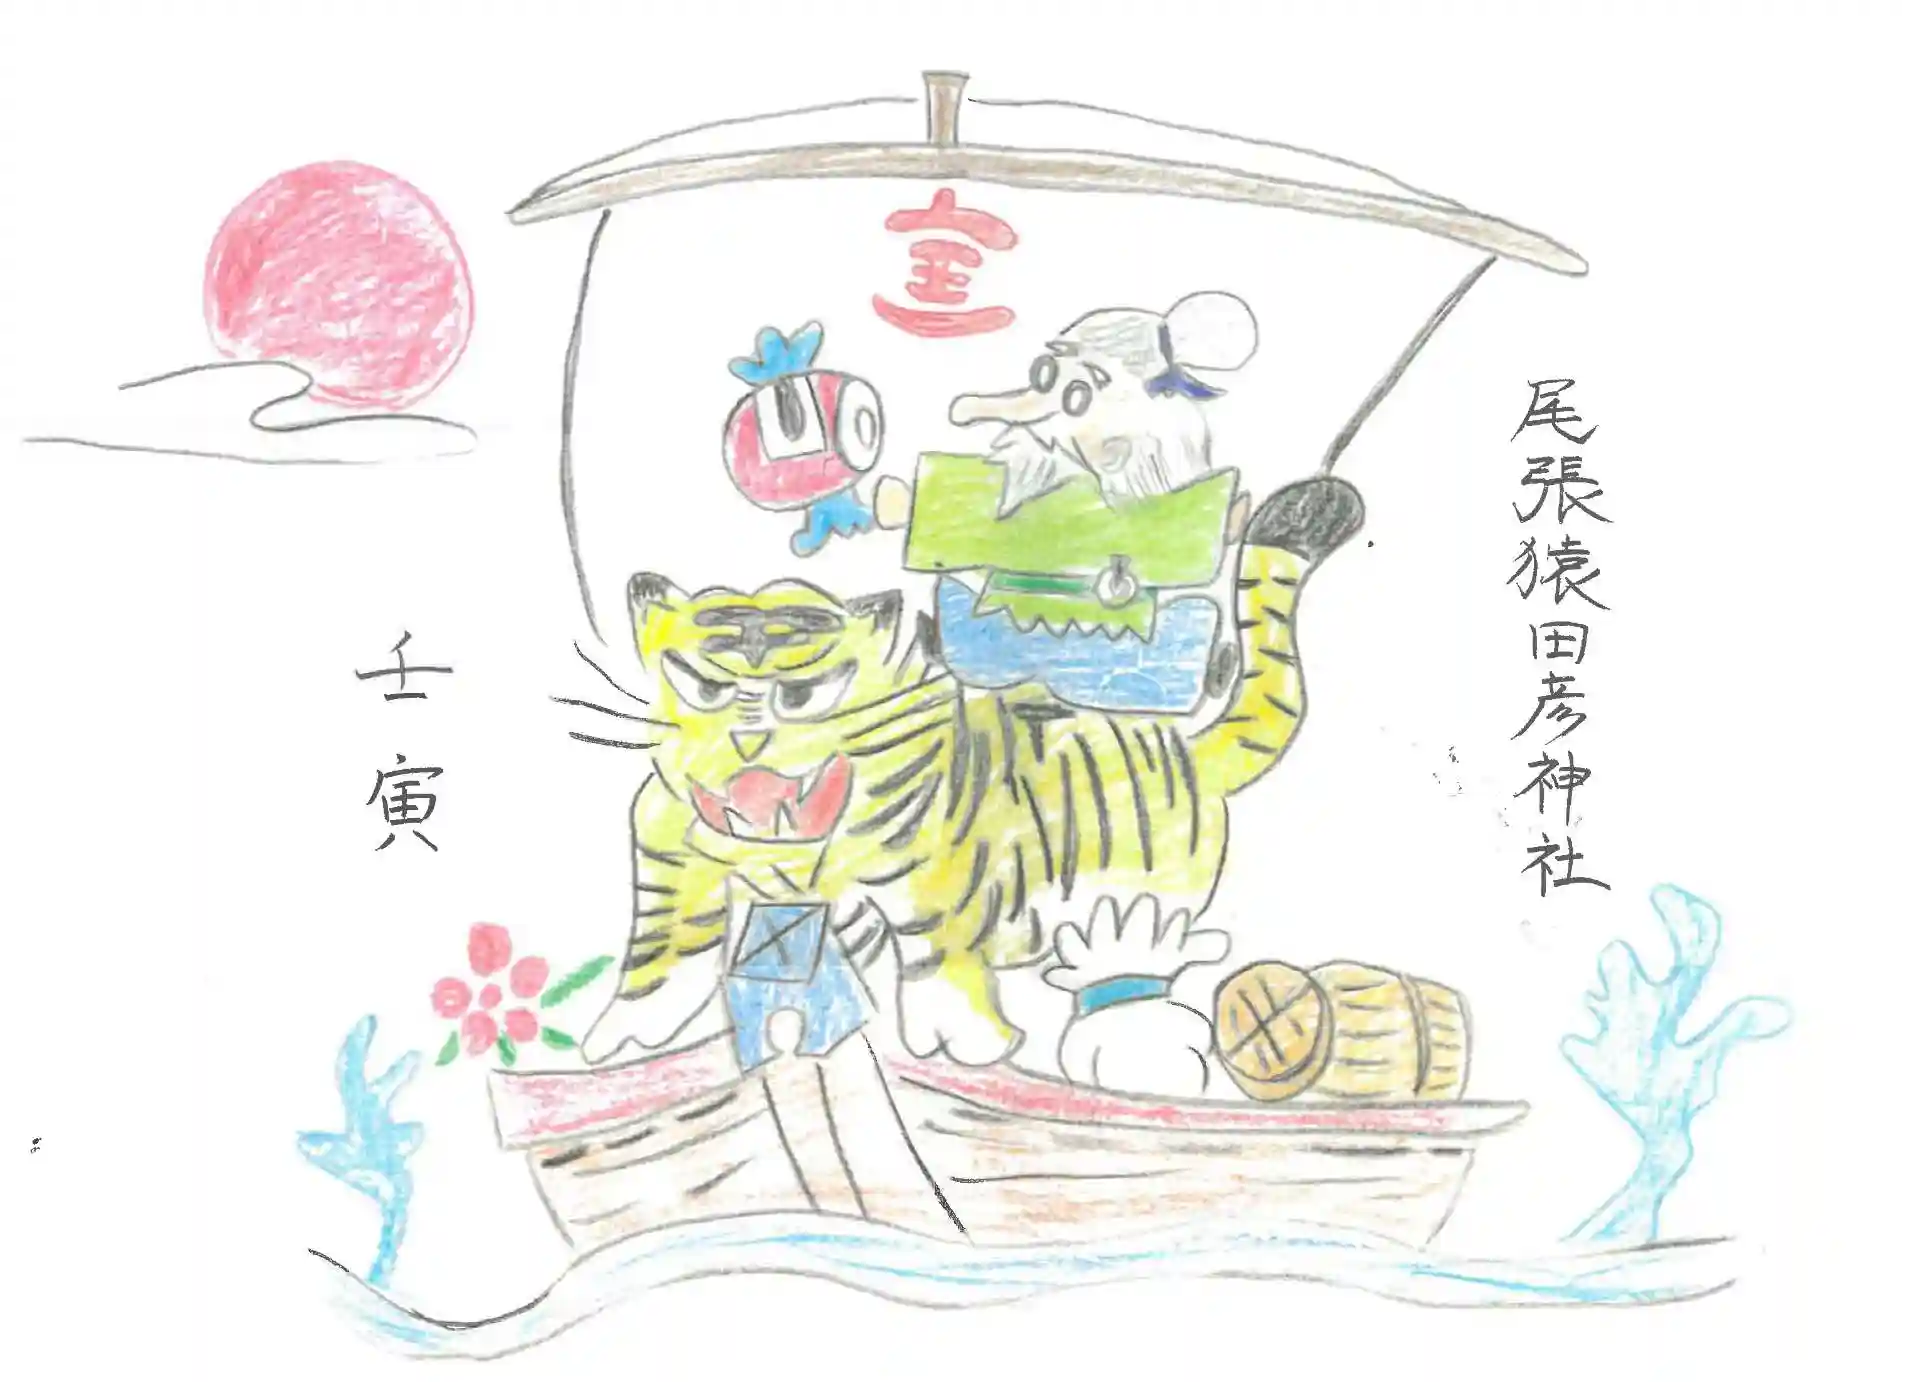 宝
尾張猿田彦神社
壬寅